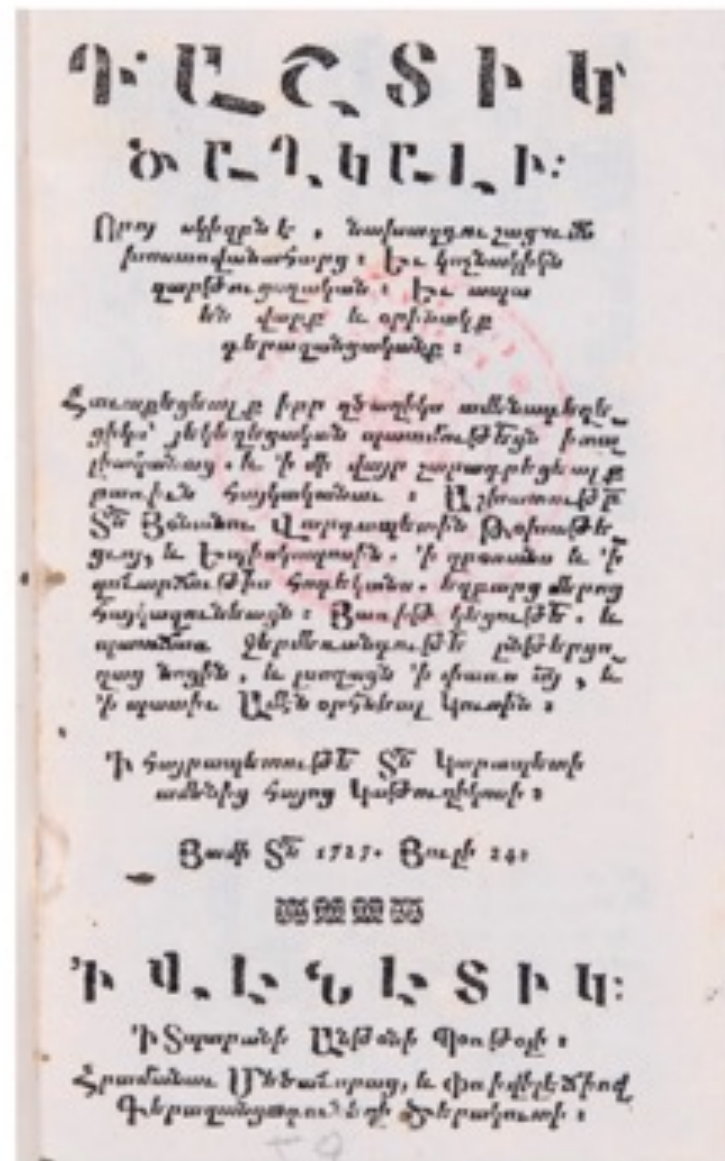 ԴԱՇՏԻԿ
ԾԱՂԿԱԼԻ։
Որոյ սկիզբն է, նախազգուշացումն
խոստովանահարց։ Եւ կոչնակիկն
զարթուցողական։ Եւ ապա
են վարք և օրինակք
գերազանցականք։
Հաւաքեցեալք իբր զծաղիկս ամենապեղե֊
ցիկս՝ յեկեղեցական պատմութեցն իտա֊
լիականաց. և ՚ի մի վայր շարագրեցեալք
բառիւն հայկականաւ։ Աշխատութբ
Տն Յօնանու Վարդապետին Թօխաթե֊
ցւոյ, և Եպիսկոպոսին. ՚ի զբօսանս և ՚ի
զուարճութիս հոգեկանս. եղբարց մերոց
հայկազունեացն։ Յառիթ կեցութե. և
պատճառ ջերմեռանդութե ընթերցո֊
ղաց նոցին, և լսողացն ՚ի փառս այ, և
՚ի պատիւ Ամէնօրհնեալ կուսին։
Ի հայրապետութե Տն Կարապետի
ամենից հայոց կաթուղիկոսի։
Յամի Տն 1727. Յուլի 24։
Ի ՎԷՆԷՏԻԿ։
Ի Տպարանի Անթօնի Պօռթօլի։
Հրամանաւ Մեծաւորաց, և փռիվիլէճիով
Գերազանց Ծերակուտի։